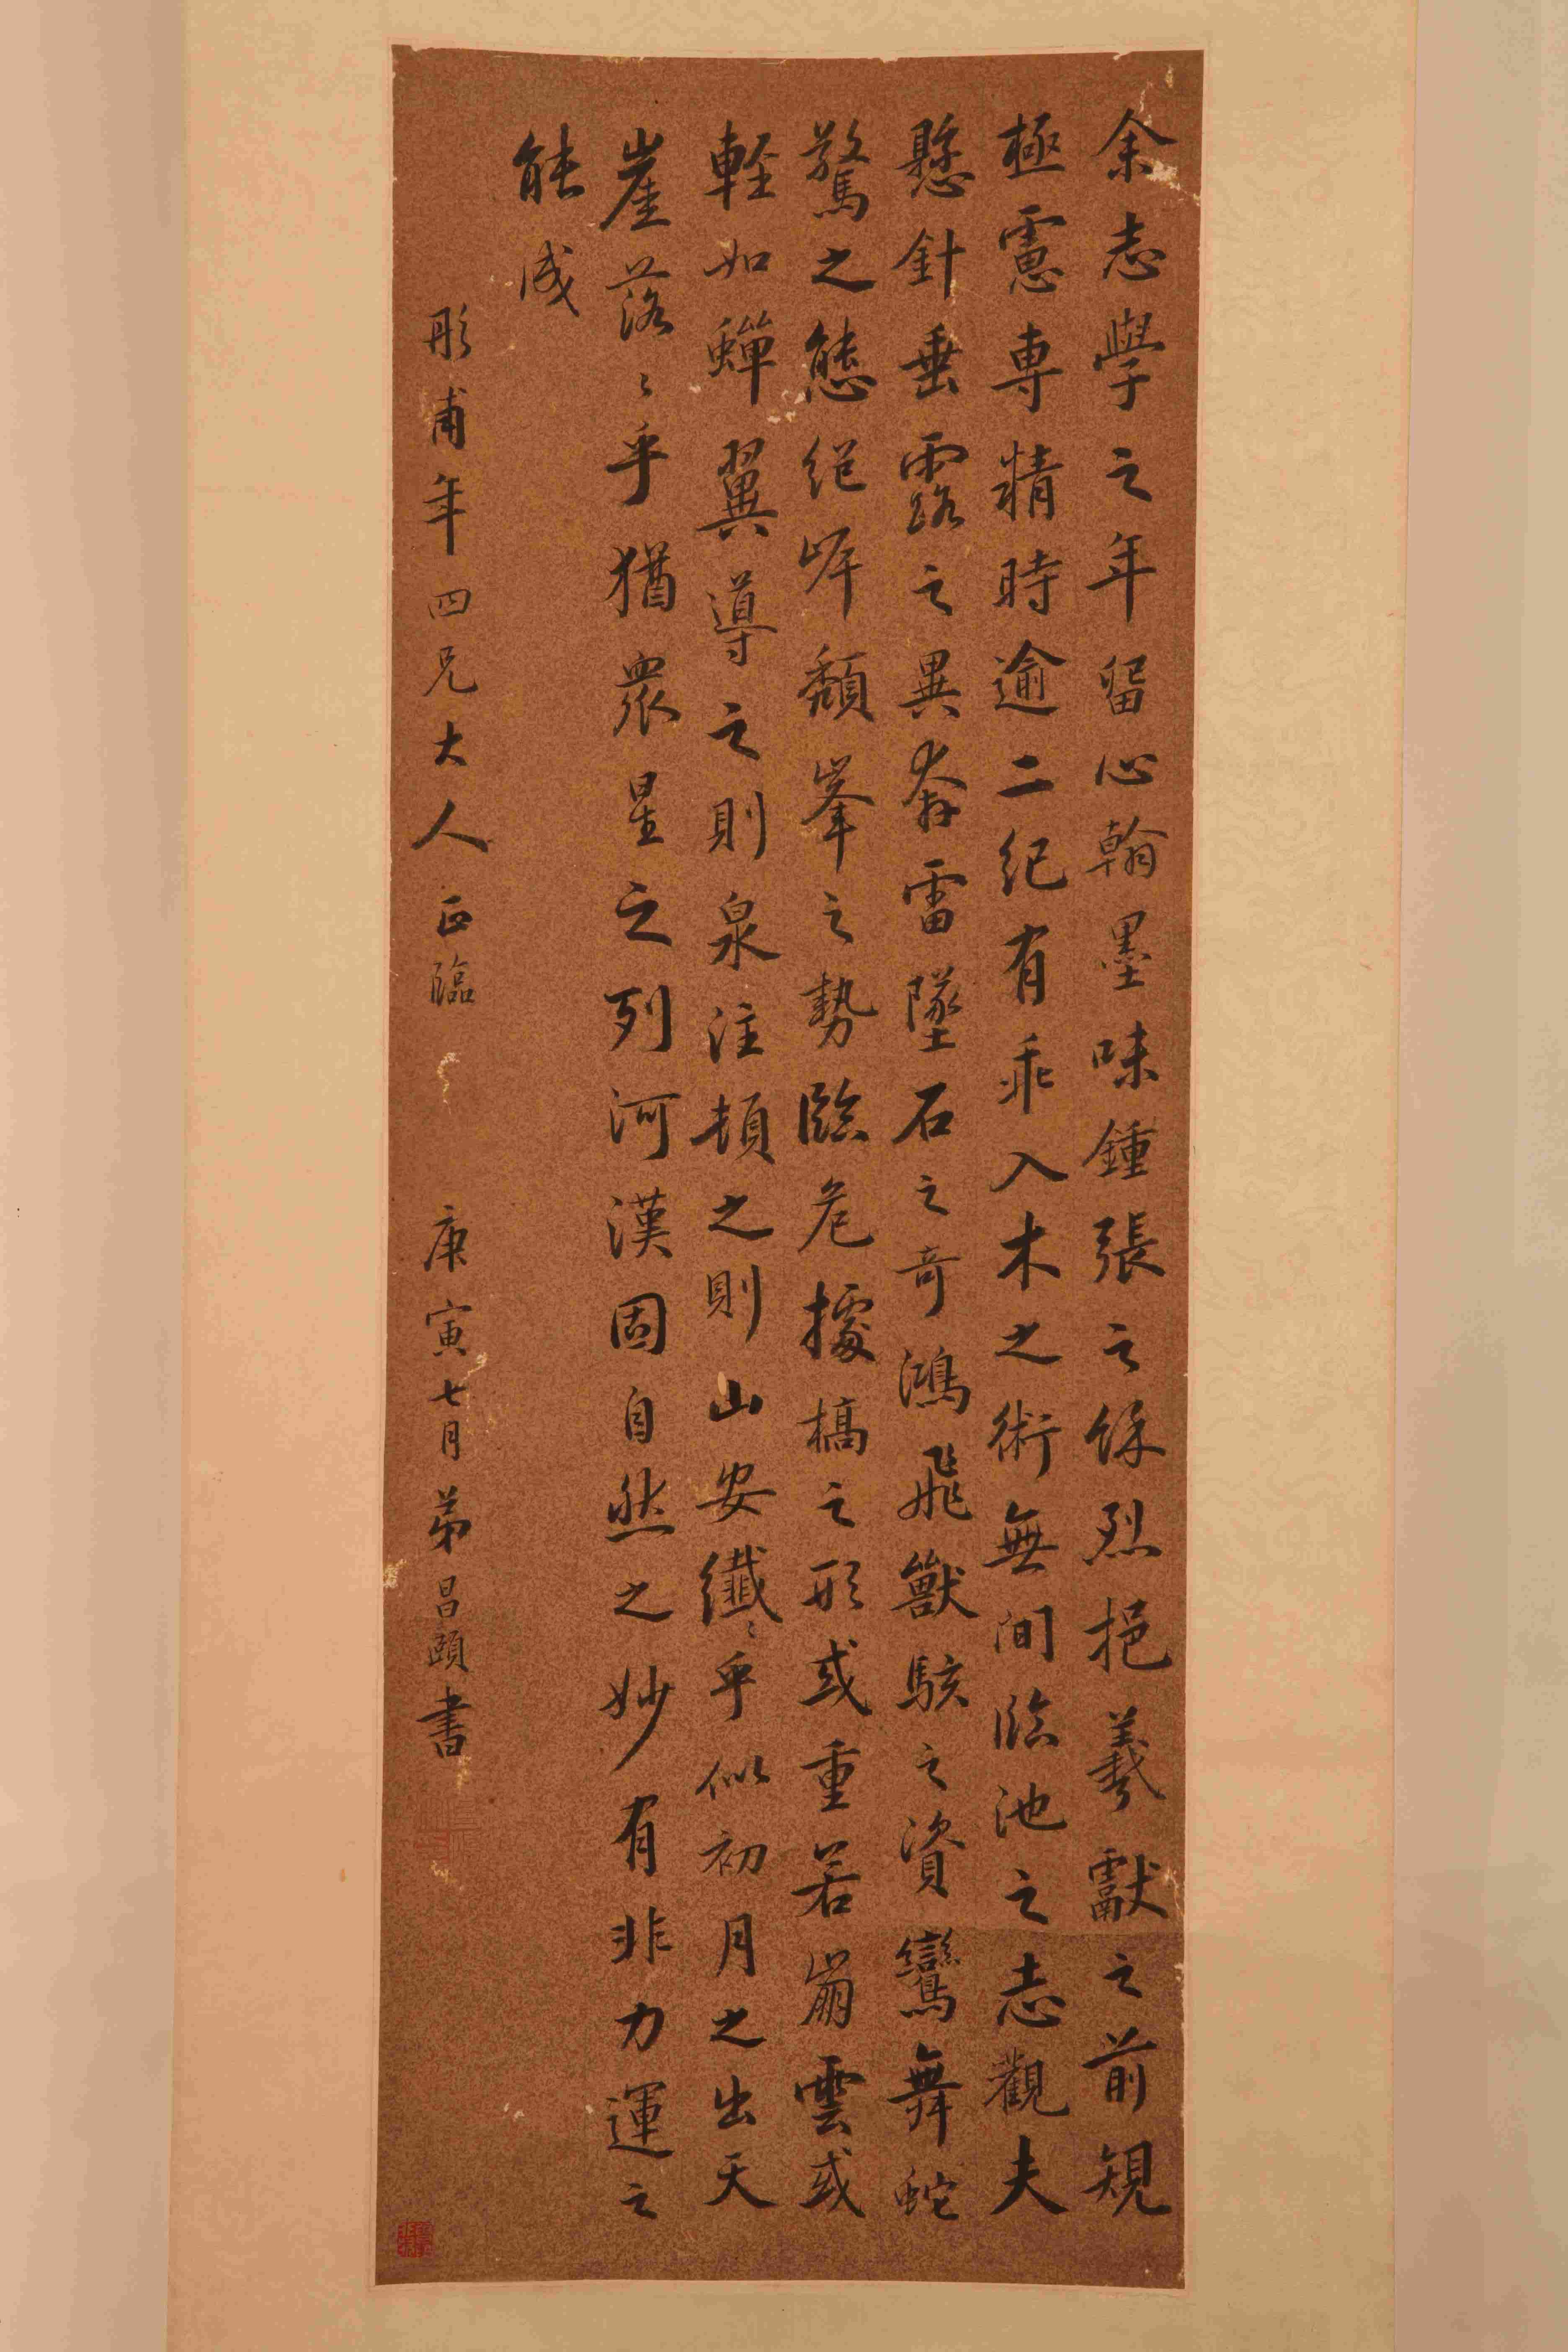 余志學之年留心翰墨味鍾張之餘烈挹羲獻之前規
極慮專精時逾二紀有乖入木之術無間臨池之志觀夫
懸針垂露之異奔雷墜石之奇鴻飛獸駭之資鸞舞蛇
驚之態絕岸頹峯之勢臨危據槁之形或重若崩雲或
輕如蟬翼導之則泉注頓之則山安纖〻乎似初月之出天
崖落〻乎猶眾星之列河漢固自然之妙有非力運之
能成
彤甫年四兄大人正臨
庚寅七月弟昌頤書